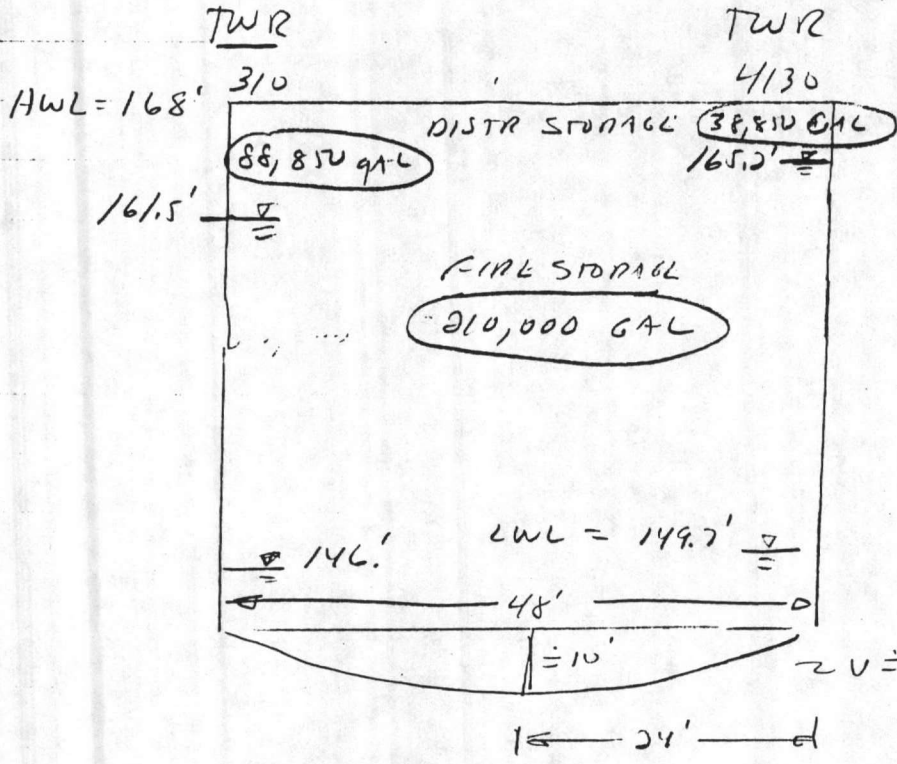 TWR TWR
310 4130
HWL = 168'
DISTR STORAGE 38,850 GAL
88,850 gAL 165.2'
161.5'
FIRE STORAGE
210,000 GAL
LWL = 149.7'
146.'
48'
≐10'
~ V ≐
24'